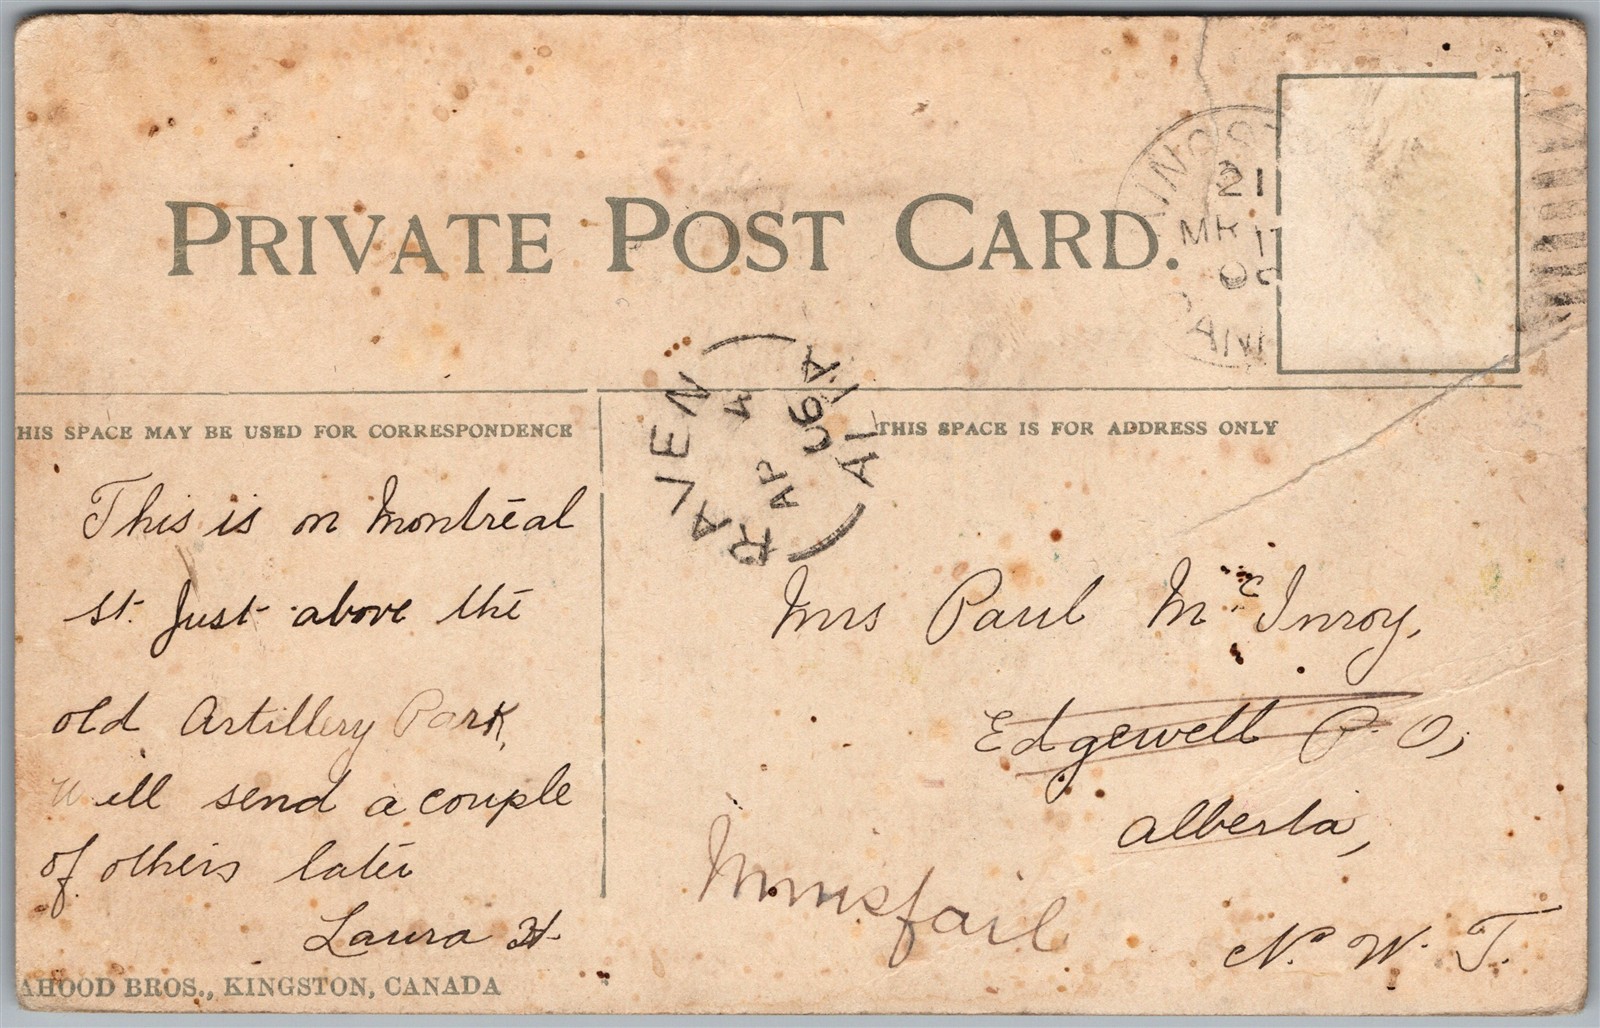 PRIVATE POST CARD.
21
MR 17
RAVEN
4
AP
06
ALTA
HIS SPACE MAY BE USED FOR CORRESPONDENCE
THIS SPACE IS FOR ADDRESS ONLY
This is on Montreal
St. Just above the
old Artillery Park,
Will send a couple
of others later
Laura H.
Mrs Paul McInroy,
Edgewell P. O,
Alberta,
Innisfail
N. W. T.
AHOOD BROS., KINGSTON, CANADA